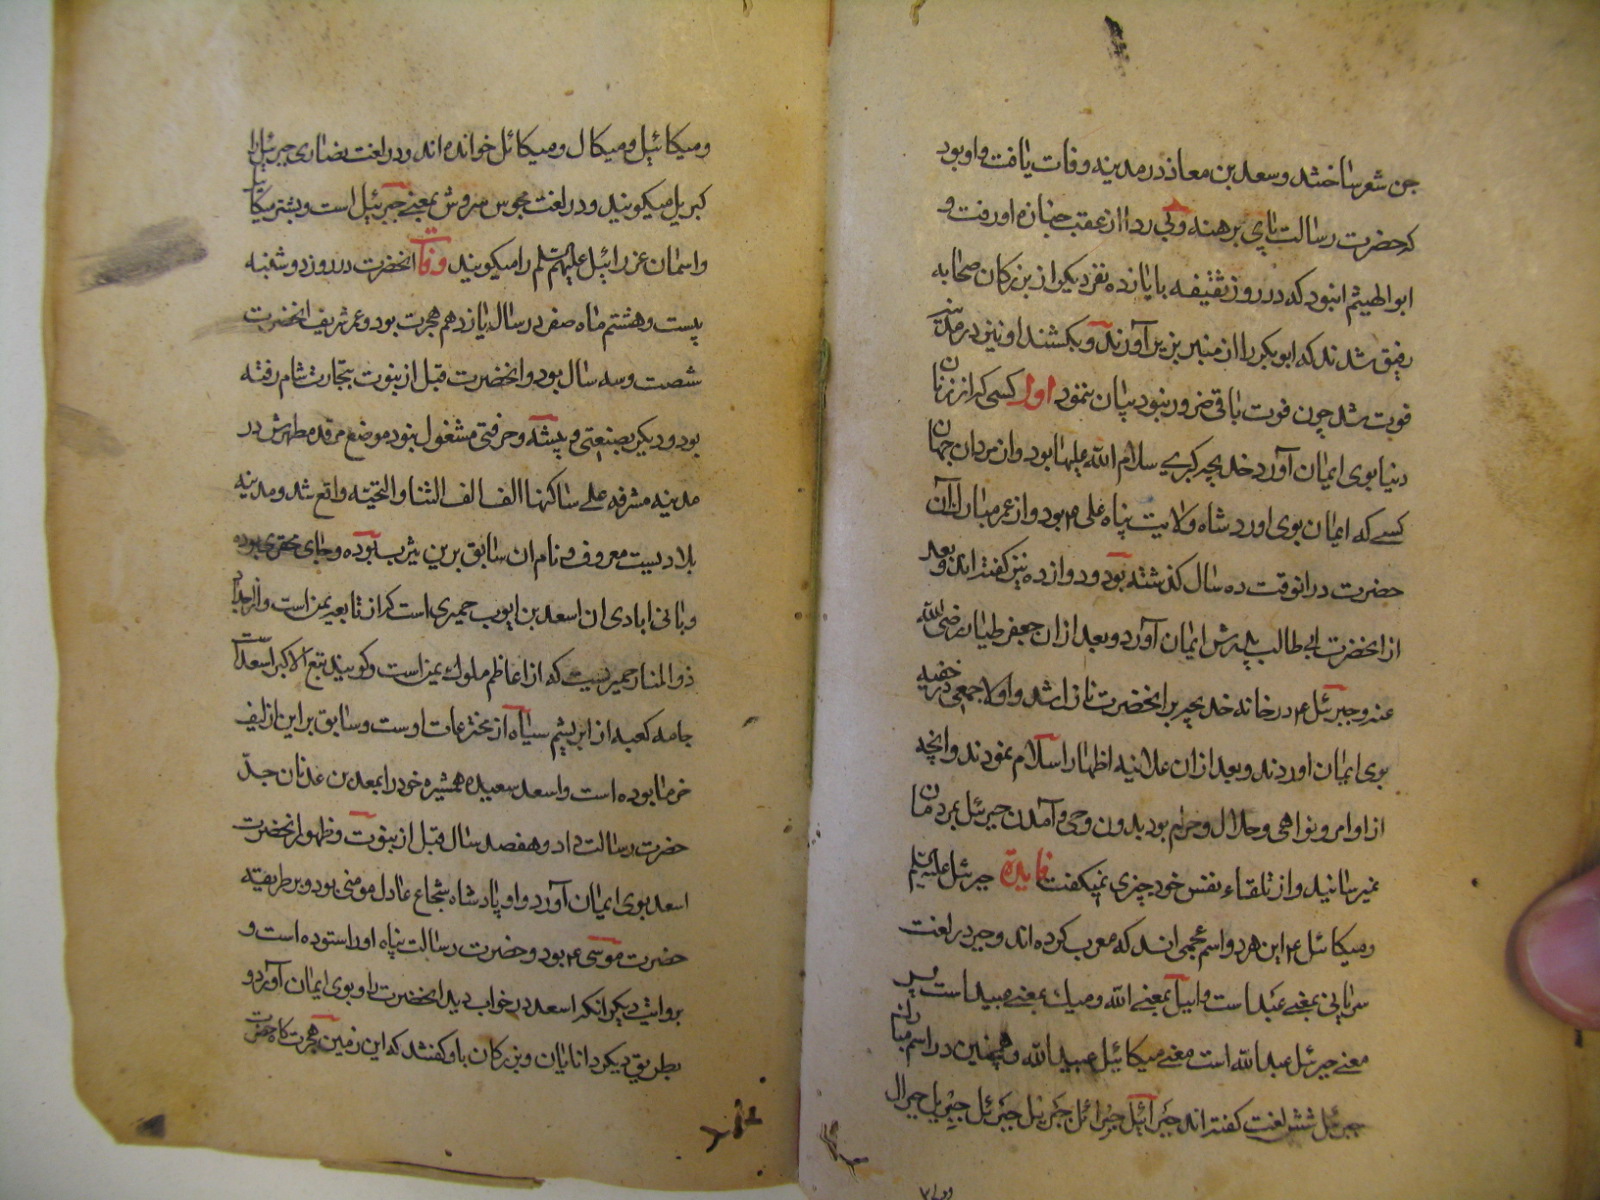 جن شعر ساختند و سعد بن معاذ در مدینه وفات یافت و او بود
که حضرت رسالت پای برهنه و بی ردا از عقب جنازه او رفت و
ابو الهیثم این بود که در روز ثقیفه با یازده نفر دیکر از بزرکان صحابه
رفیق شدند که ابو بکر را از منبر بزیر آورند و بکشند او نیز در مدینه
فوت شد چون فوت باقی ضرور نبود بیان ننمود اول کسی که از زنان
دنیا بوی ایمان آورد خدیجه کبری سلام الله علیها بود و از مردان جهان
کسی که ایمان بوی اورد شاه ولایت پناه علی ع م بود و از عمر مبارک آن
حضرت در انوقت ده سال کذشته بود و دوازده نیز کفته اند و بعد
از انحضرت ابی طالب پدرش ایمان آورد و بعد از ان جعفر طیار رضی الله
عنه و جبرئیل ع م در خانه خدیجه بر انحضرت نازل شد و اولا جمعی در خفیه
بوی ایمان اوردند و بعد از ان علانیه اظهار اسلام نمودند و انچه
از اوامر و نواهی و حلال و حرام بود بدون وحی و آمدن جبرئیل بمردمان
نمیرسانید و از تلقاء نفس خود چیزی نمیکفت فایدة جبرئیل علیه السلم
و میکائیل ع م این هر دو اسم عجمی اند که معرب کرده اند و جبر در لغت
سریانی بمعنی عبد است و ائیل بمعنی الله و میک بمعنی عبید است پس
معنی جبرئیل عبد الله است معنی میکائیل عبید الله و همچنین در اسم مبارک
جبرئیل شش لغت کفته اند جبرائیل جبرائل جبریل جبرئل جبریل جبرال
ومیکائیل و میکال و میکائل خوانده اند و در لغت نصاری جبرئیل را
کبریل میکویند و در لغت مجوس سروش بمعنی جبرئیل است و بشتر میکائیل
و اسمان عزرائیل علیهم السلم را میکویند وفات انحضرت در روز دوشنبه
بیست و هشتم ماه صفر در سال یازدهم هجرت بود و عمر شریف انحضرت
شصت و سه سال بود و انحضرت قبل از نبوت بتجارت شام رفته
بود و دیکر بصنعتی و پیشه و حرفتی مشغول نبود موضع مرقد مطهرش در
مدینه مشرفه علی ساکنها الف الف الثنا و التحیته واقع شد و مدینه
بلادیست معروف و نام ان سابق برین یثرب بوده و جای محقری بوده
و بانی ابادی ان اسعد بن ایوب حمیری است که از تابعه یمن است و از اجداد
ذو المنار حمیریست که از اعاظم ملوک یمن است و کویند تبع الاکبر اسعد است
جامه کعبه از ابریشم سیاه از مخترعات اوست و سابق بر این از لیف
خرما بوده است و اسعد سعیده همشیره خود را بمعد بن عدنان جد
حضرت رسالت داد و هفصد سال قبل از نبوت و ظهور انحضرت
اسعد بوی ایمان آورد و او پادشاه شجاع عادل مومنی بود و بر طریقته
حضرت موسی ع م بود و حضرت رسالت پناه او را ستوده است و
بروایت دیکر انکه اسعد در خواب دید انحضرت را و بوی ایمان آورد و
بطریق دیکر دانایان و بزرکان باو کفتند که این زمین هجرت کاه حضرت